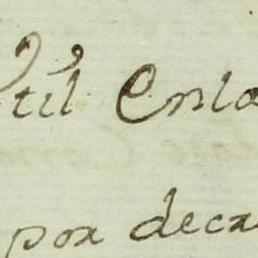 til Enla
por decr